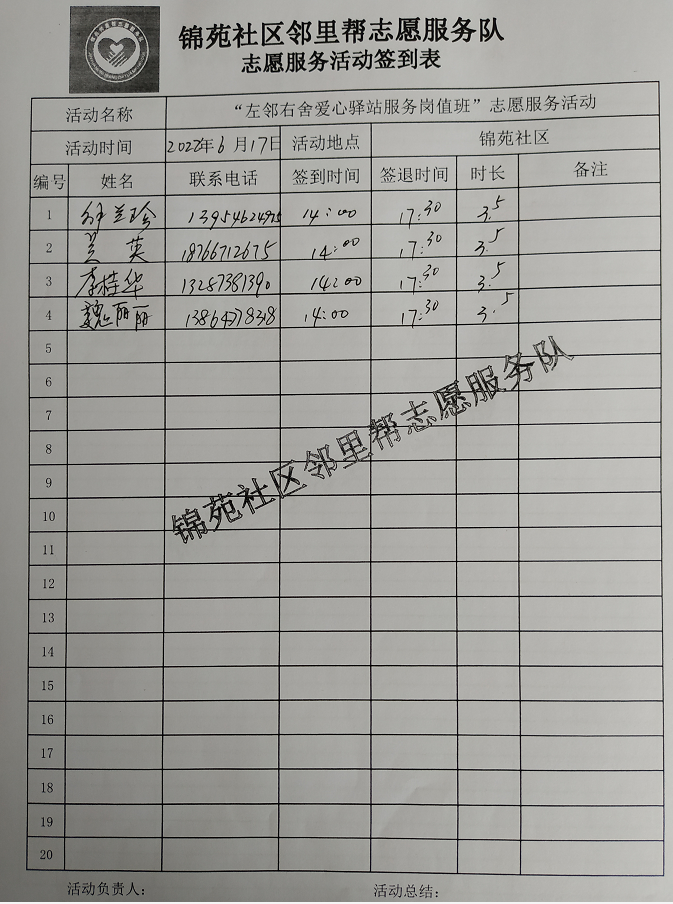 锦苑社区邻里帮志愿服务队
志愿服务活动签到表
活动名称 “左邻右舍爱心驿站服务岗值班”志愿服务活动
活动时间 2022年6月17日 活动地点 锦苑社区
编号 姓名 联系电话 签到时间 签退时间 时长 备注
1 兰珍 14:00 17:30 3.5
2 英 18766712675 14:00 17:30 3.5
3 李桂华 13287381390 14:00 17:30 3.5
4 魏丽丽 14:00 17:30 3.5
5
6
7
8
9
10
11
12
13
14
15
16
17
18
19
20
锦苑社区邻里帮志愿服务队
活动负责人: 活动总结: